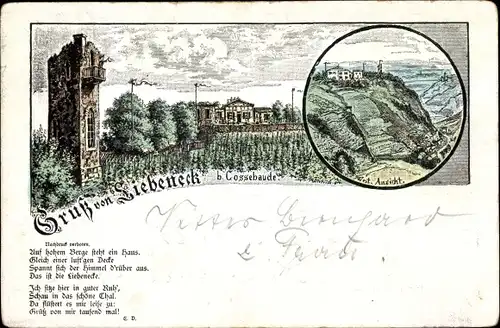 Gruß von Liebeneck
b. Cossebaude.
Ansicht.
Nachdruck verboten.
Auf hohem Berge steht ein Haus.
Gleich einer luft'gen Decke
Spannt sich der Himmel d'rüber aus.
Das ist die Liebenecke.
Ich sitze hier in guter Ruh',
Schau in das schöne Thal.
Da flüstert es mir leise zu:
Grüß von mir tausend mal!
C. D.